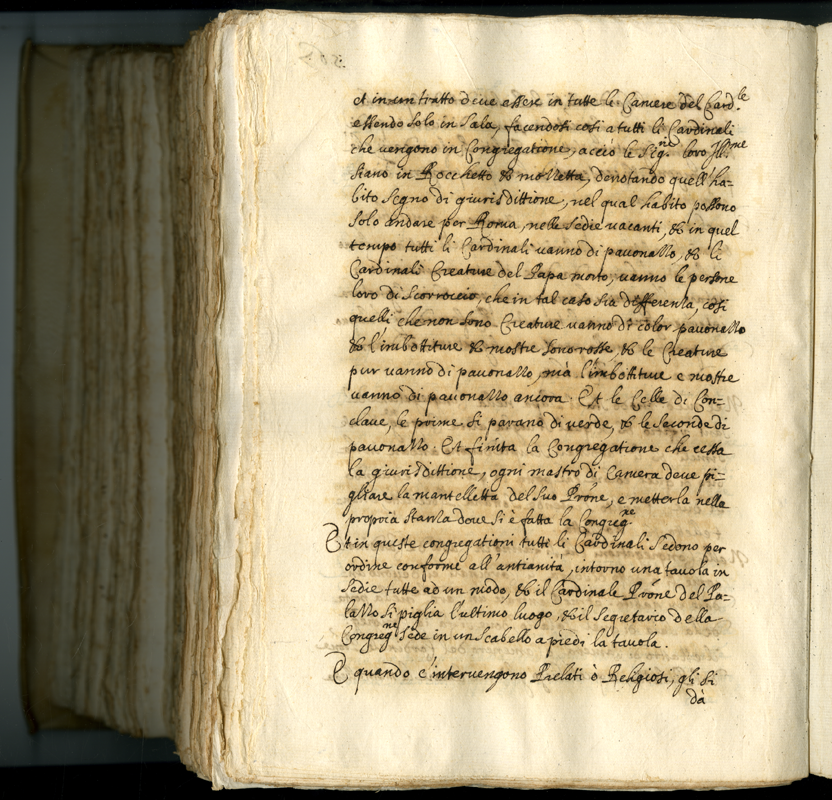 et in un tratto deve essere in tutte le Camere del Card.le
essendo solo in Sala, facendosi così a tutti li Cardinali
che vengono in Congregatione, acciò le Sig.rie loro Ill.me
siano in Rocchetto & mozzetta, denotando quell'ha-
bito segno di giurisdittione, nel qual habito possono
solo andare per Roma, nelle sedie vacanti, & in quel
tempo tutti li Cardinali vanno di pavonazzo, & li
Cardinali Creature del Papa morto, vanno le persone
loro di Scorroccio, che in tal caso sia differenza, così
quelli che non sono Creature vanno di color pavonazzo
& l'imbottiture & mostre sono rosse, & le Creature
pur vanno di pavonazzo, mà l'imbottiture e mostre
vanno di pavonazzo ancora. Et le Celle di Con-
clave, le prime si parano di verde, & le seconde di
pavonazzo. Et finita la Congregatione che cessa
la giurisdittione, ogni mastro di Camera deve pi-
gliare la mantelletta del suo Prone, e metterla nella
propria stanza dove si è fatta la Congreg.ne
Et in queste congregationi tutti li Cardinali sedono per
ordine conforme all'antianità, intorno una tavola in
sedie tutte ad un modo, & il Cardinale Prone del Pa-
lazzo si piglia l'ultimo luogo, & il Segretario della
Congreg.ne sede in un scabello a piedi la tavola.
E quando c'intervengono Prelati ò Religiosi, gli si
dà